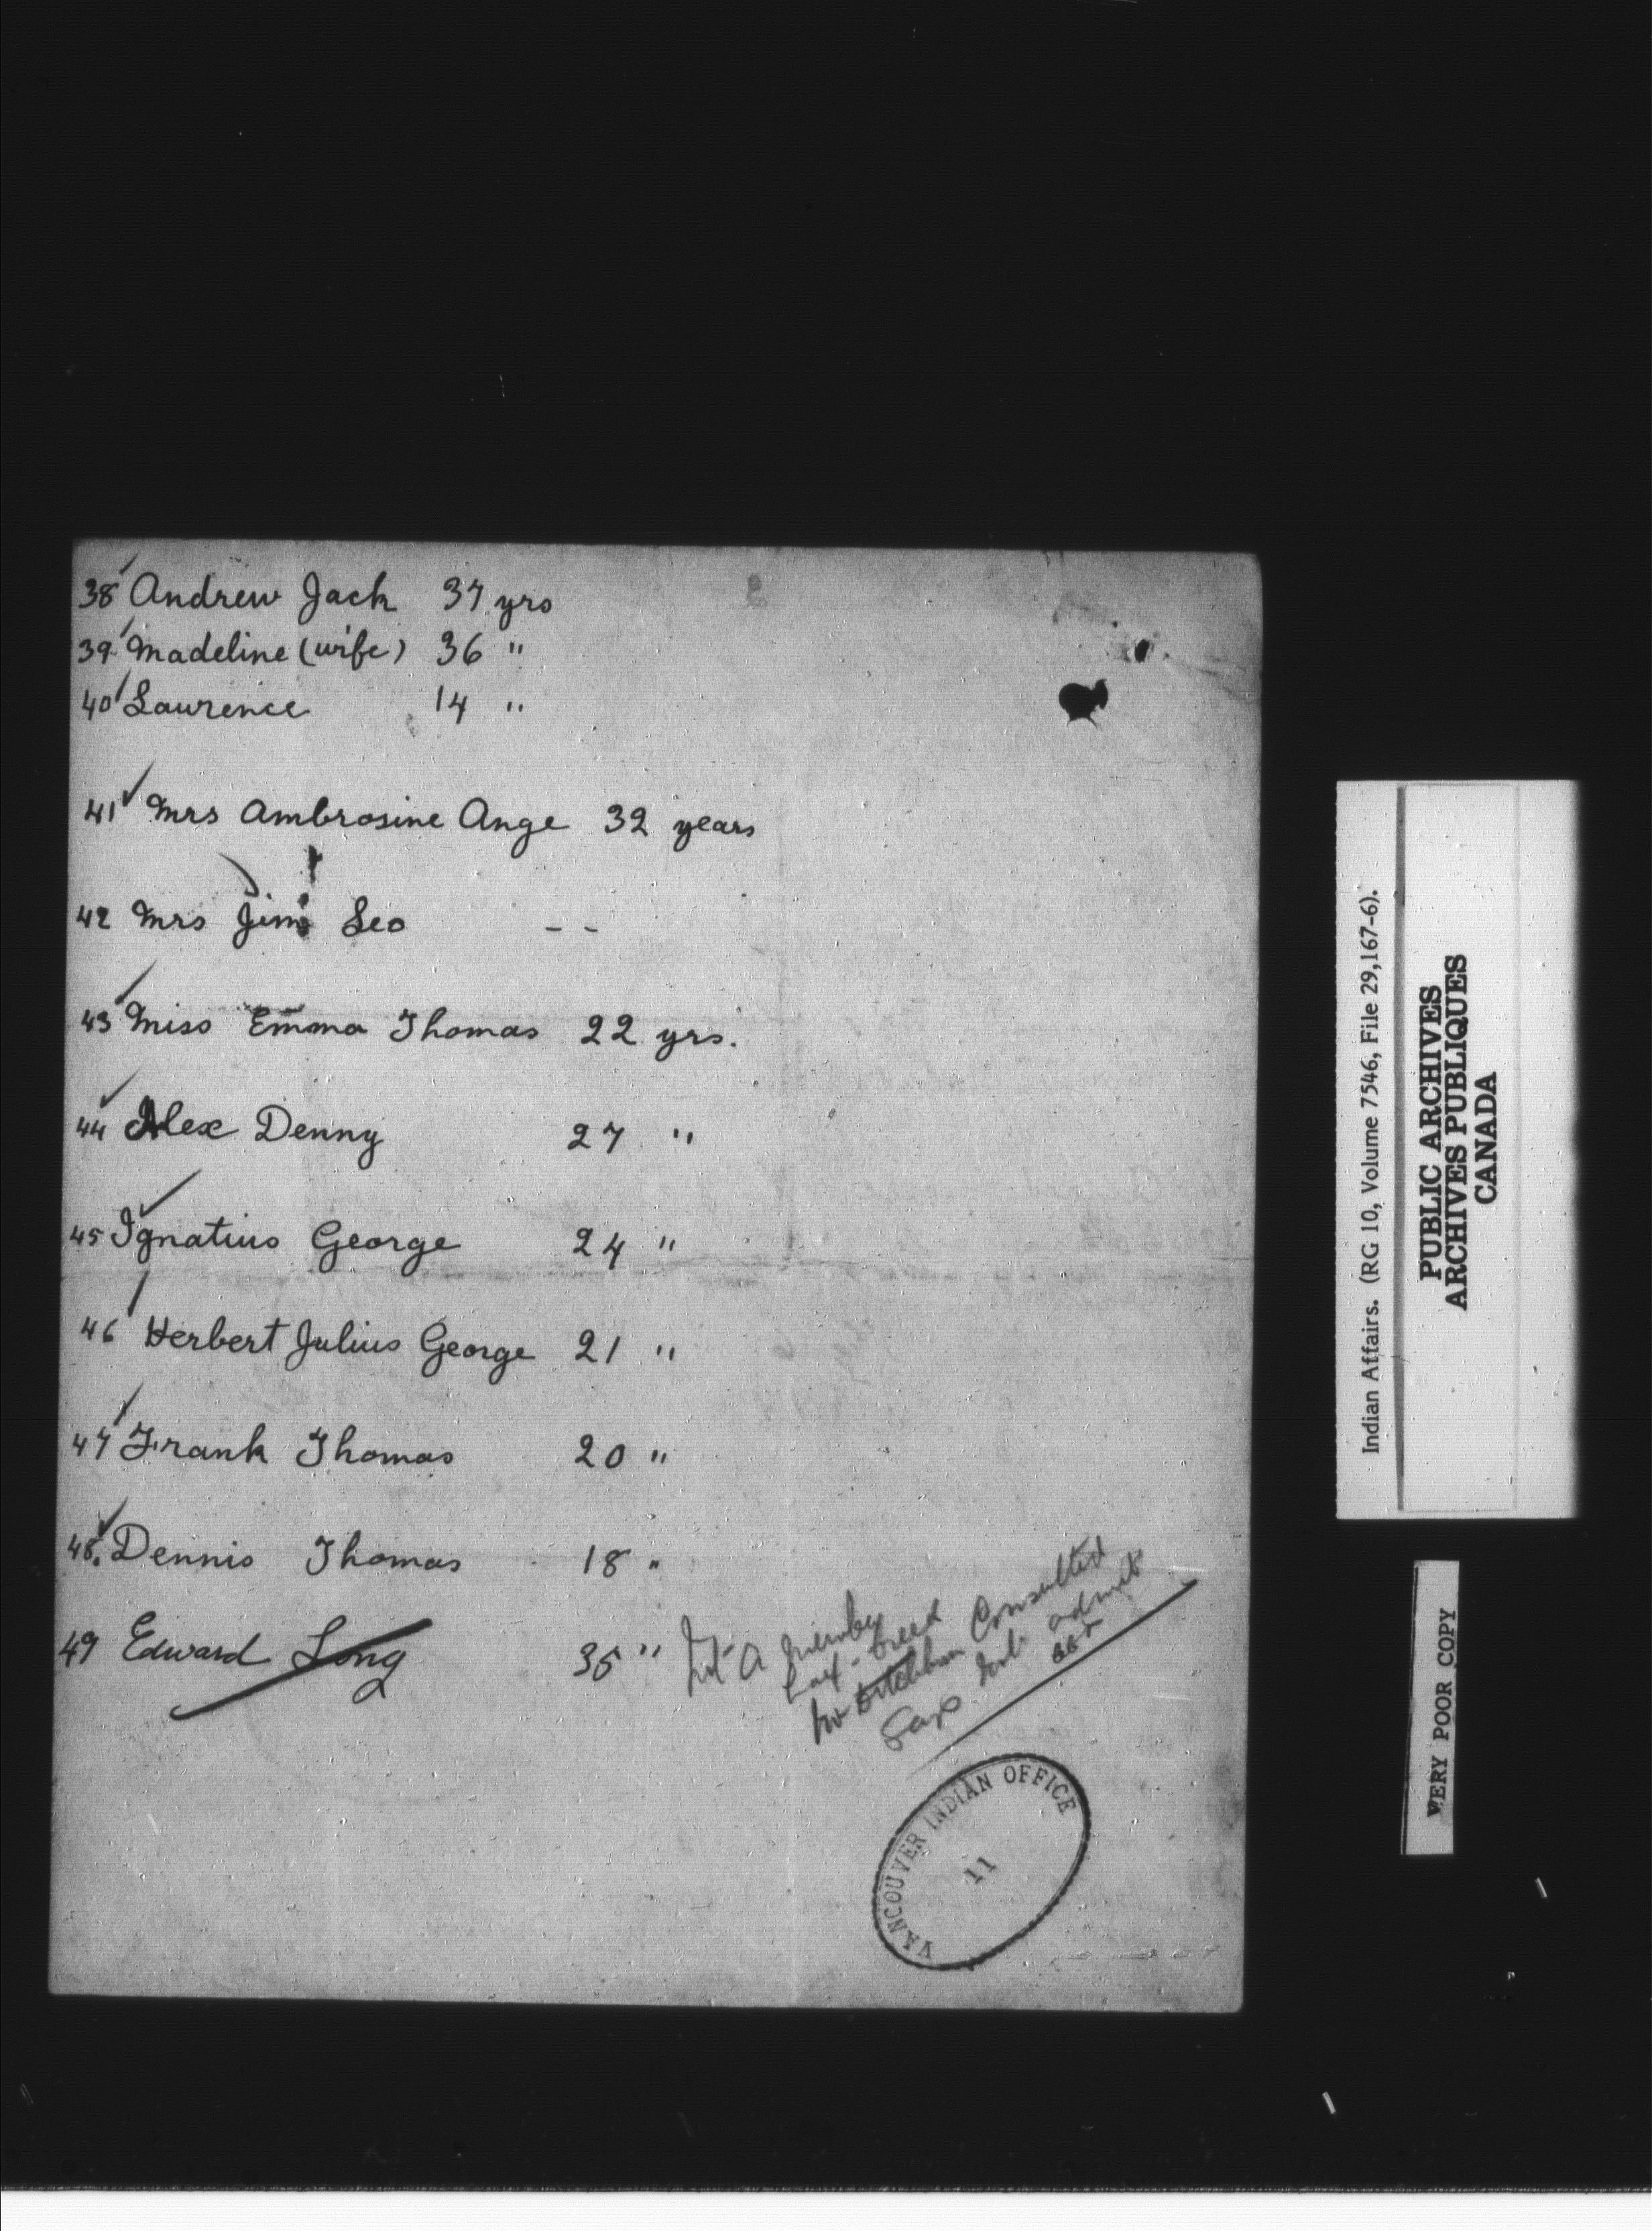 38 Andrew Jack 37 yrs
39 Madeline (wife) 36 "
40 Lawrence 14 "
41 Mrs Ambrosine Ange 32 years
42 Mrs Jim Leo - -
43 Miss Emma Thomas 22 yrs.
44 Alex Denny 27 "
45 Ignatius George 24 "
46 Herbert Julius George 21 "
47 Frank Thomas 20 "
48. Dennis Thomas 18 "
49 Edward Long 35 " Not a member
half-breed
Mr Ditchburn Consulted
Says don't admit
VANCOUVER INDIAN OFFICE
11
Indian Affairs. (RG 10, Volume 7546, File 29,167-6).
PUBLIC ARCHIVES
ARCHIVES PUBLIQUES
CANADA
VERY POOR COPY